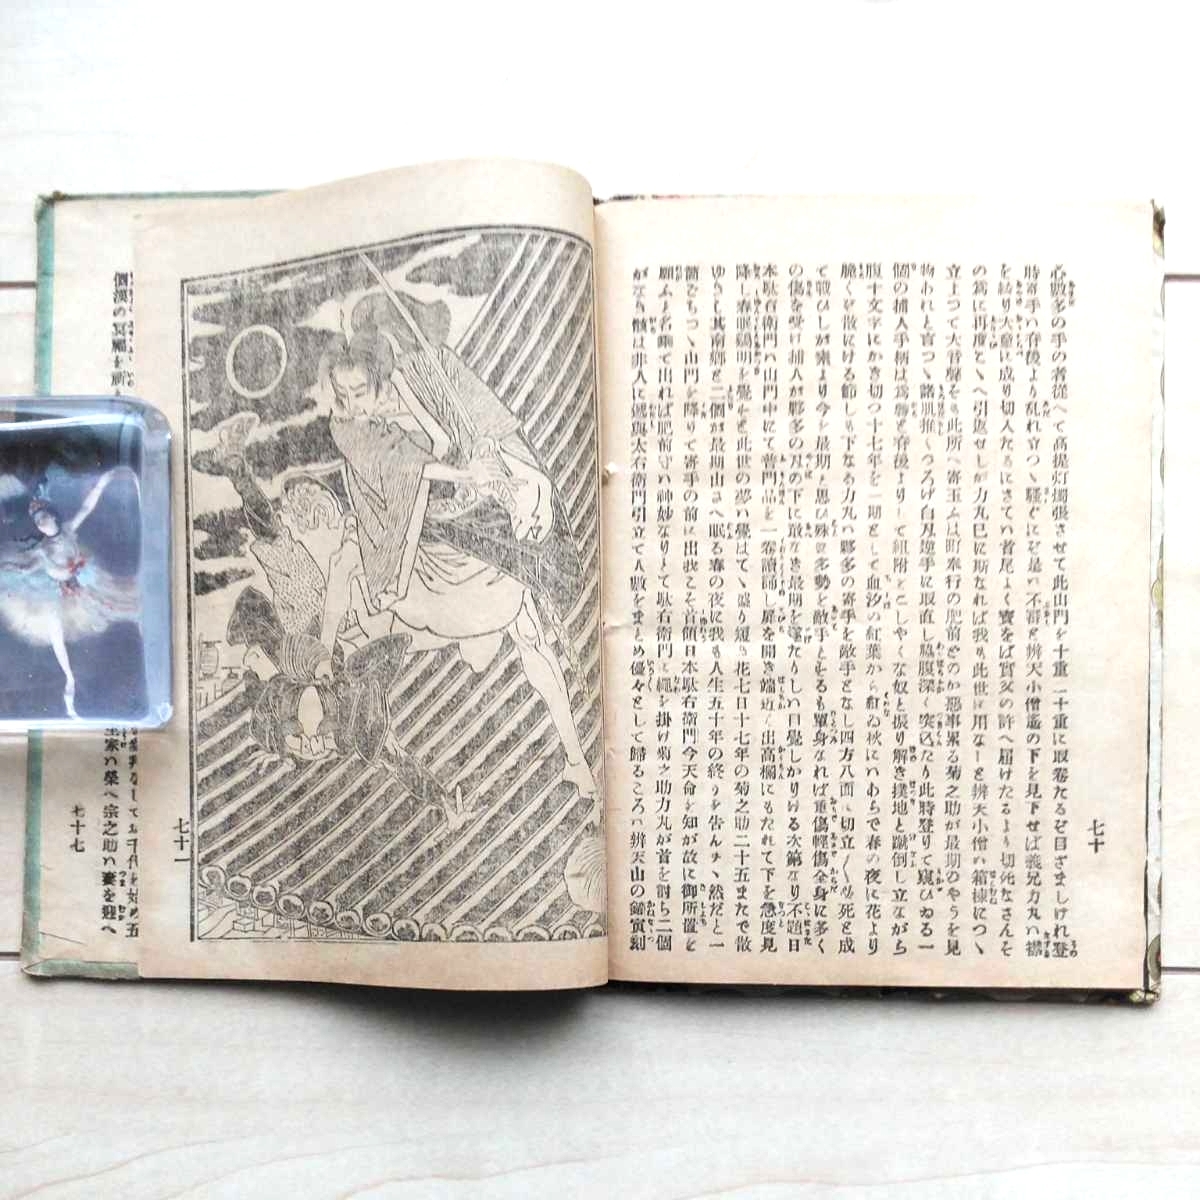 七十
心數多の手の者從へて高提灯燭張させて此山門を十重二十重に取卷たるぞ目ざましけれ登
時寄手の脊後より乱れ立つゝ騷ぐにぞ是ハ不審と辨天小僧遙の下を見下せば義兄力丸ハ襟
を絞り大童に成り切入たるにさてハ首尾よく寶をば實父の許へ屆けたるより切死なさんそ
の爲に再度こゝへ引返せしが力丸已に斯なれば我も此世に用なしと辨天小僧ハ箱棟につゝ
立上つて大音聲をも此所へ寄玉ふハ町奉行の肥前どのか惡事累る菊之助が最期のやうを見
物あれと言つゝ諸肌推くつろげ白刄逆手に取直し脇腹深く突込たり此時登りて窺ひゐる一
個の捕人手柄ハ爲勝と脊後よりして組附をこしやくな奴と振り解き撲地と蹴倒し立ながら
腹十文字にかき切つ十七年を一期として血汐の紅葉から紅ゐ秋にハあらで春の夜に花より
脆くも散にける節しも下なる力丸ハ夥多の寄手を敵手となし四方八面に切立〱必死と成
て戰ひしが素より今を最期と思ひ殊に多勢を敵手とせるも單身なれば重傷輕傷全身に多く
の傷を受け捕人が夥多の刄の下に敢なき最期を遂たりしハ目覺しかりける次第なり不題日
本駄右衛門ハ山門中にて普門品を一卷讀誦し扉を開き端近く出高欄にもたれて下を急度見
降し春眠鷄明を覺ゑと此世の夢ハ覺はてゝ盛り短き花七日十七年の菊之助二十五までで散
ゆりし其南郷と二個が最期山さへ眠る春の夜に我も人生五十年の終りを告んチヽ然だと一
箇ごちつゝ山門を降りて寄手の前に出我こそ首領日本駄右衛門今天命を知が故に御所置を
願ふと名乘て出れば肥前守ハ神妙なりとて駄右衛門に繩を掛け菊之助力丸が首を討ち二個
がなき骸は非人に遞與太右衛門引立て人數をまとめ優々として歸るころハ辨天山の鐘寅刻
七十一
個漢の冥福を祈
主家ハ榮へ宗之助ハ妻を迎へ
七十七